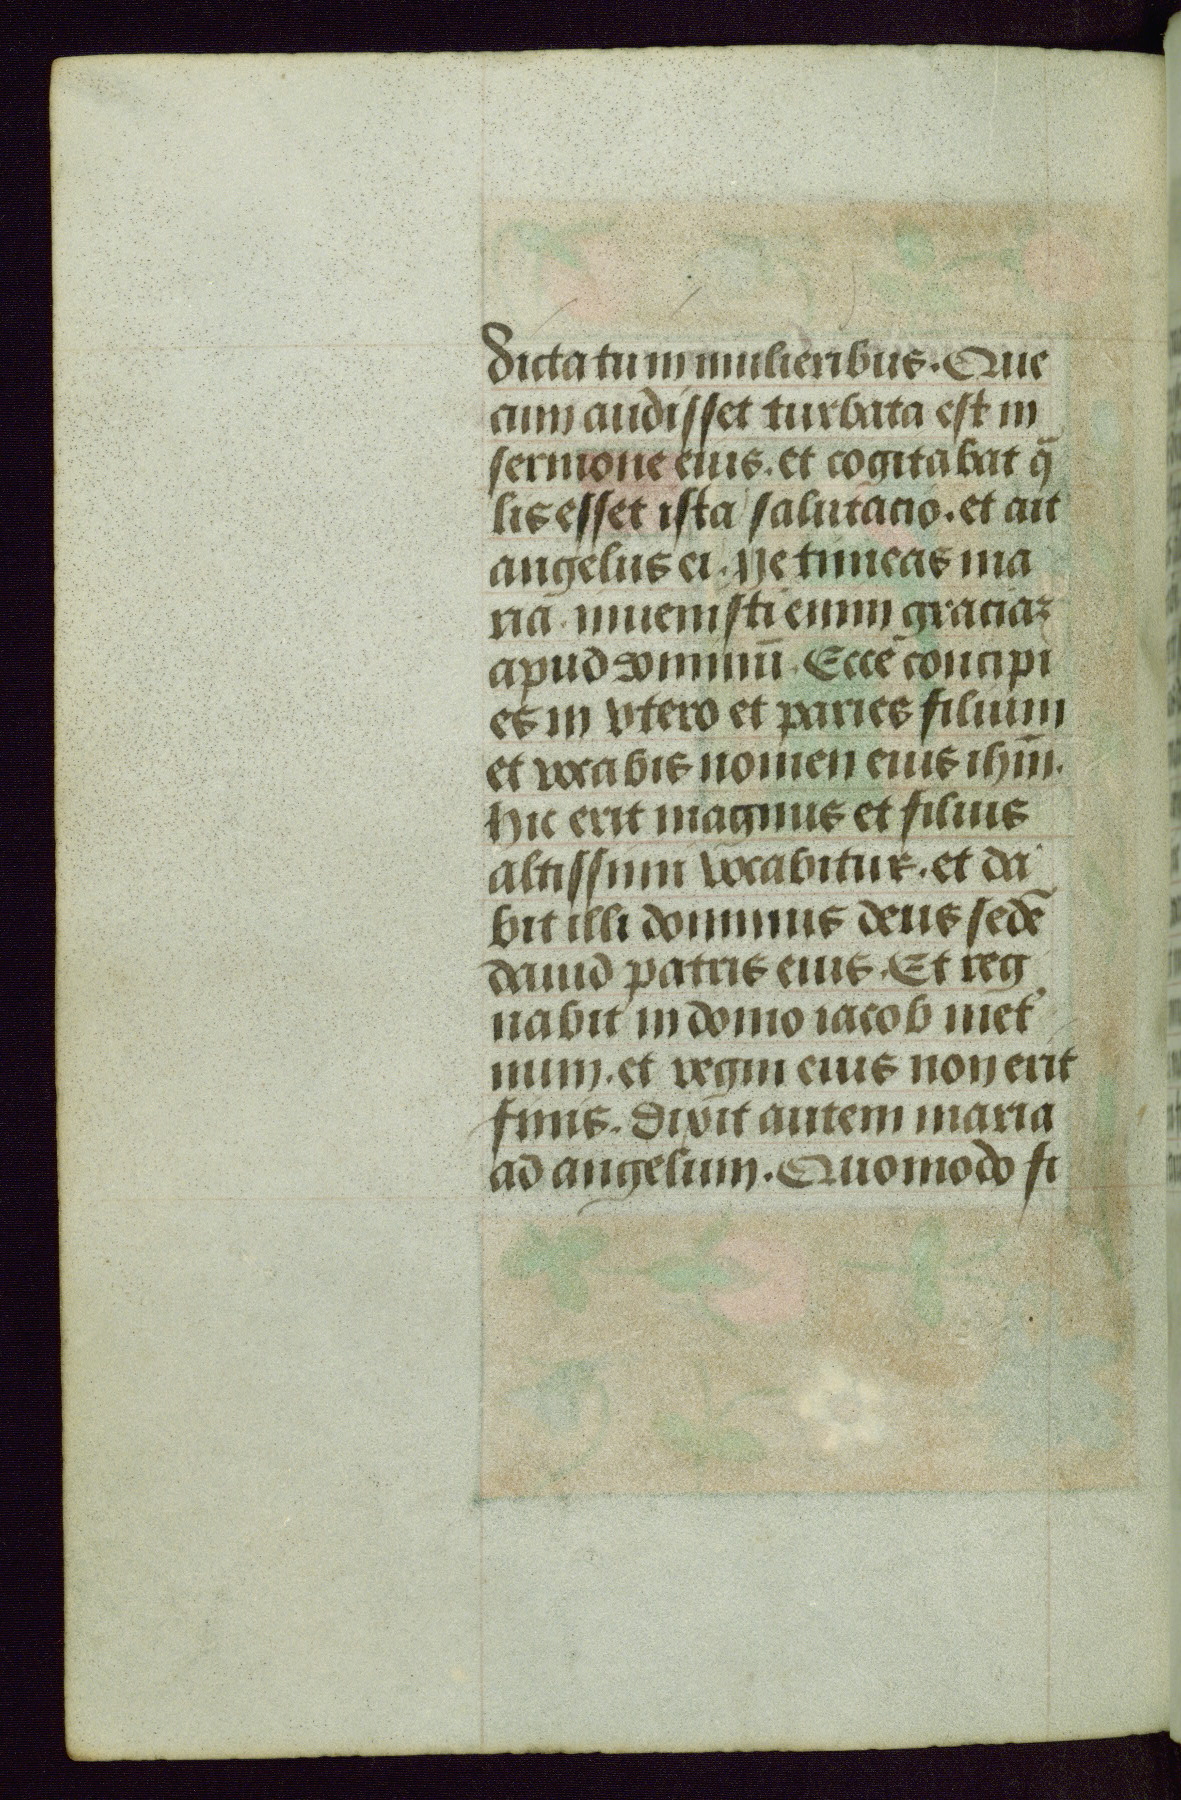 dicta tu in mulieribus. Que
cum audisset turbata est in
sermone eius. et cogitabat q̄
lis esset ista salutacio. et ait
angelus ei. Ne timeas ma
ria. inuenisti enim graciaꝫ
apud dominū. Ecce concipi
es in vtero et paries filium
et vocabis nomen eius ihm̄.
hic erit magnus et filius
altissimi vocabitur. et da
bit illi dominus deus sedē
dauid patris eius. Et reg
nabit in domo iacob in et̾
num. et regni eius non erit
finis. Dixit autem maria
ad angelum. Quomodo fi